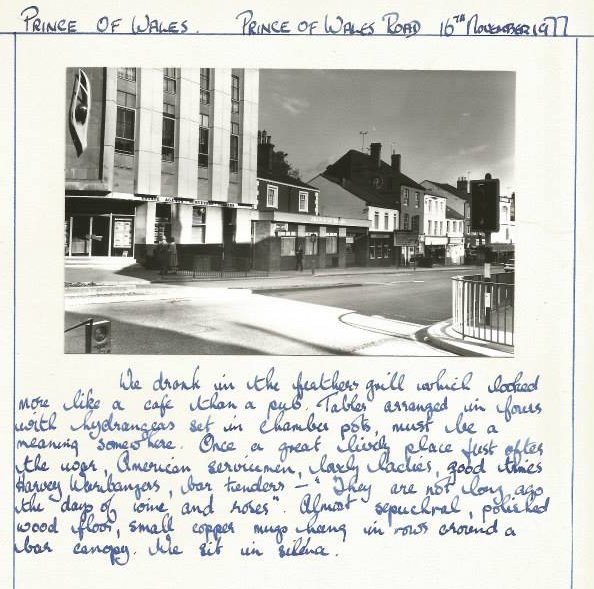 PRINCE OF WALES. PRINCE OF WALES ROAD 16TH NOVEMBER 1977
We drank in the feathers grill which looked
more like a cafe than a pub. Tables arranged in fours
with hydrangeas set in chamber pots, must be a
meaning somewhere. Once a great lively place just after
the war, American servicemen, lovely ladies, good times
Harvey Wallbangers, bar tenders – "They are not long ago
the days of wine and roses". Almost sepuchral, polished
wood floor, small copper mugs hang in rows around a
bar canopy. We sit in silence.